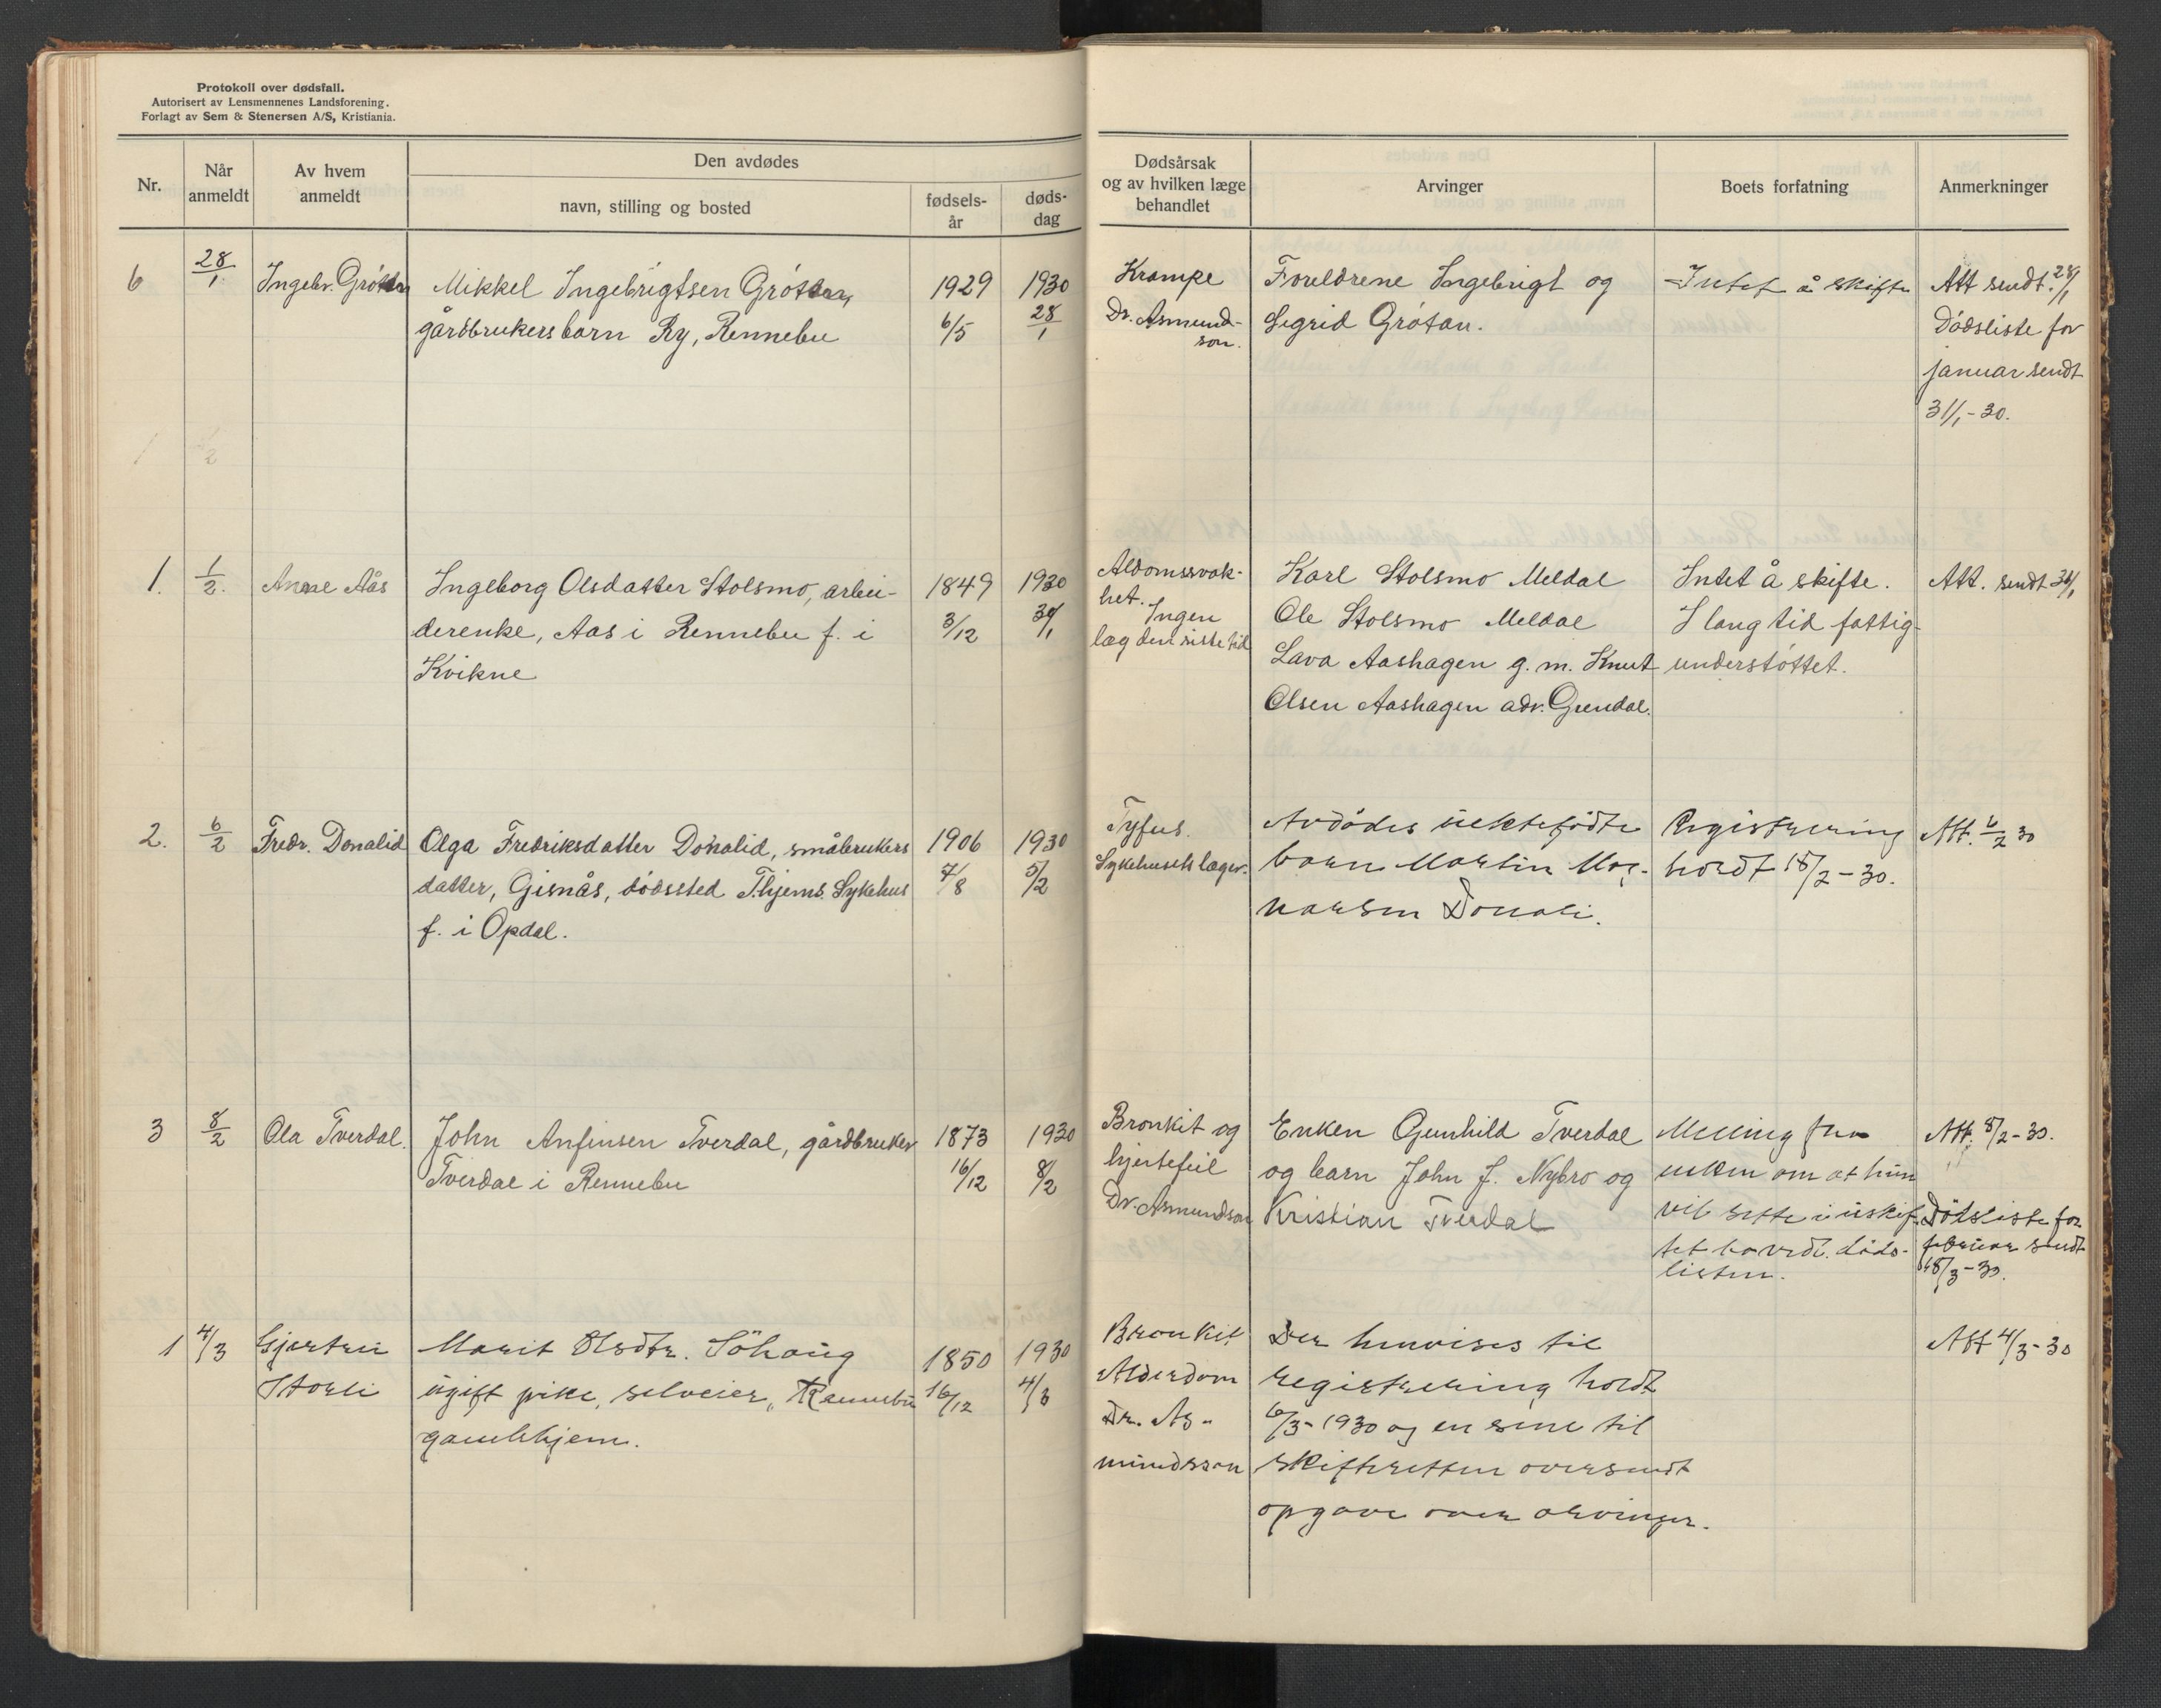 Protokoll over dødsfall.
Autorisert av Lensmennenes Landsforening.
Forlagt av Sem & Stenersen A/S, Kristiania.
Nr.
Når anmeldt
Av hvem anmeldt
Den avdødes
navn, stilling og bosted
fødsels-år
døds-dag
Dødsårsak
og av hvilken læge
behandlet
Arvinger
Boets forfatning
Anmerkninger
6
28/1
Ingebr. Grøtan
Mikkel Ingebrigtsen Grøtan,
gårdbrukersbarn Ry, Rennebu
1929
6/5
1930
28/1
Krampe
Dr. Asmund-
son.
Foreldrene Ingebrigt og
Sigrid Grøtan.
Intet å skifte
Att sendt 28/1
Dødsliste for
januar sendt
31/1-30.
1.
1/2.
Anne Aås
Ingeborg Olsdatter Stolsmo, arbei-
derenke, Aas i Rennebu f. i
Kvikne
1849
3/12
1930
Aldomssvak-
het. Ingen
læg den siste tid
Karl Stolsmo Meldal
Ole Stolsmo Meldal
Lava Aashagen g. m. Knut
Olsen Aashagen adr. Grendal.
Intet å skifte.
I lang tid fattig-
understøttet.
Att. sendt
2.
6/2
Fredr. Donalid
Olga Fredriksdatter Donalid, småbrukers
datter, Gisnås, dødssted T.hjems Sykehus
f. i Opdal.
1906
7/8
1930
5/2
Tyfus.
Sykehusets læger.
Avdødes uektefødte
barn Martin Mag-
narsen Donali.
Registrering
holdt 18/2-30.
Att. 6/2 30
3
8/2
Ola Tverdal.
John Anfinsen Tverdal, gårdbruker
Tverdal i Rennebu
1873
16/12
1930
8/2
Bronkit og
hjertefeil
Dr. Asmundson
Enken Gunhild Tverdal
og barn John J. Nybro og
Kristian Tverdal
Melling fra
enken om at hun
vil sitte i uskif-
tet bo vedl. døds-
listen.
Att. 8/2-30.
Dødsliste for
februar sendt
1
4/3
Gjertru
Storli
Marit Olsdtr. Söhaug
ugift pike, selveier, Rennebu
gamlehjem.
1850
16/12
1930
4/3
Bronkit
Alderdom
Dr. As-
mundsson
Der henvises til
registrering holdt
6/3-1930 og en sene til
skifteretten oversendt
opgave over arvinger.
Att 4/3-30